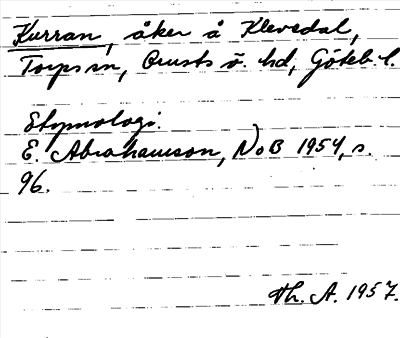 Kurran, åker å Klevedal,
Torps sn, Orusts ö. hd, Göteb. l.
Etymologi.
E. Abrahamson, NoB 1954, s.
96.
Th. A. 1957.